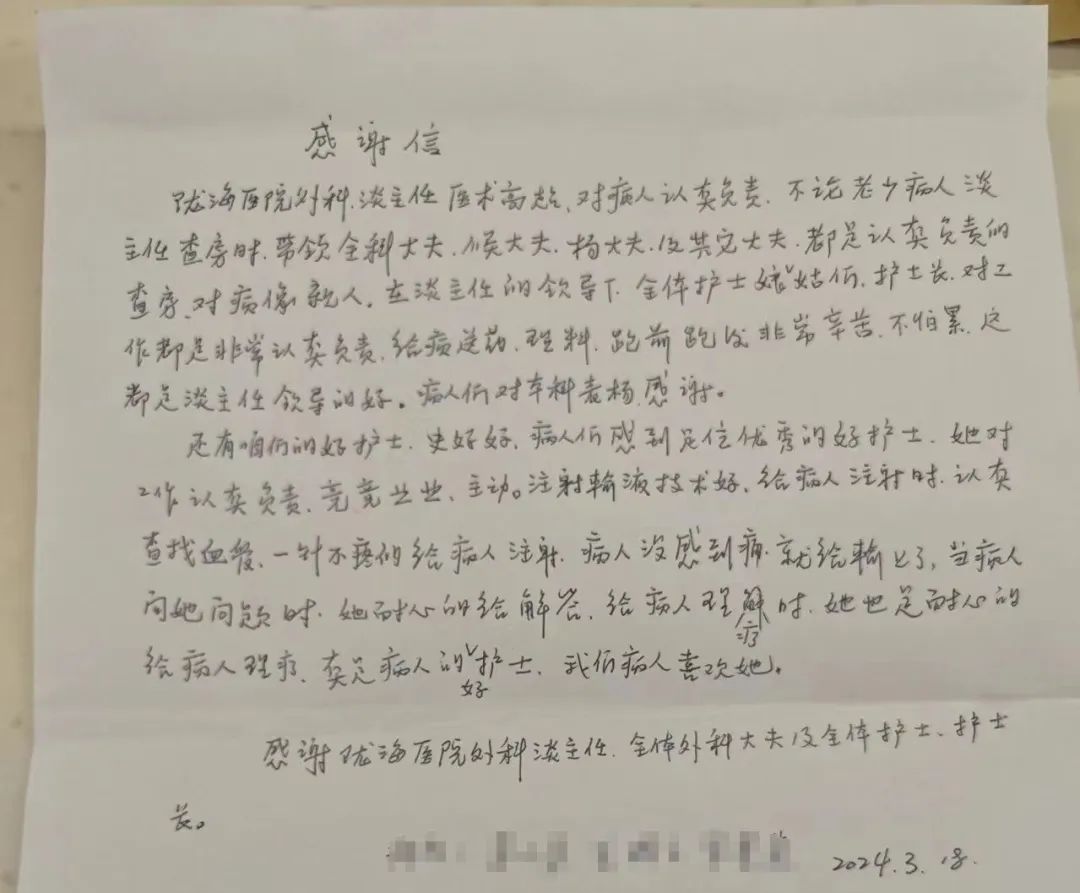 感谢信
陇海医院外科.淡主任医术高超、对病人认真负责.不论老少病人淡
主任查房时.带领全科大夫.候大夫.杨大夫.及其它大夫.都是认真负责的
查房、对病像亲人。在淡主任的领导下.全体护士姑娘们.护士长.对工
作都是非常认真负责.给病送药.理料.跑前跑后非常辛苦.不怕累.这
都是淡主任领导的好。病人们对本科表杨.感谢。
还有咱们的好护士.史好好.病人们感到是位优秀的好护士.她对
工作认真负责、兢兢业业、主动。注射输液技术好、给病人注射时.认真
查找血管、一针不疼的给病人注射.病人没感到痛.就给输上了，当病人
问她问题时.她耐心的给解答、给病人理疗时.她也是耐心的
给病人理疗、真是病人的好护士、我们病人喜欢她。
感谢陇海医院外科淡主任.全体外科大夫及全体护士、护士
长。
2024.3.18.